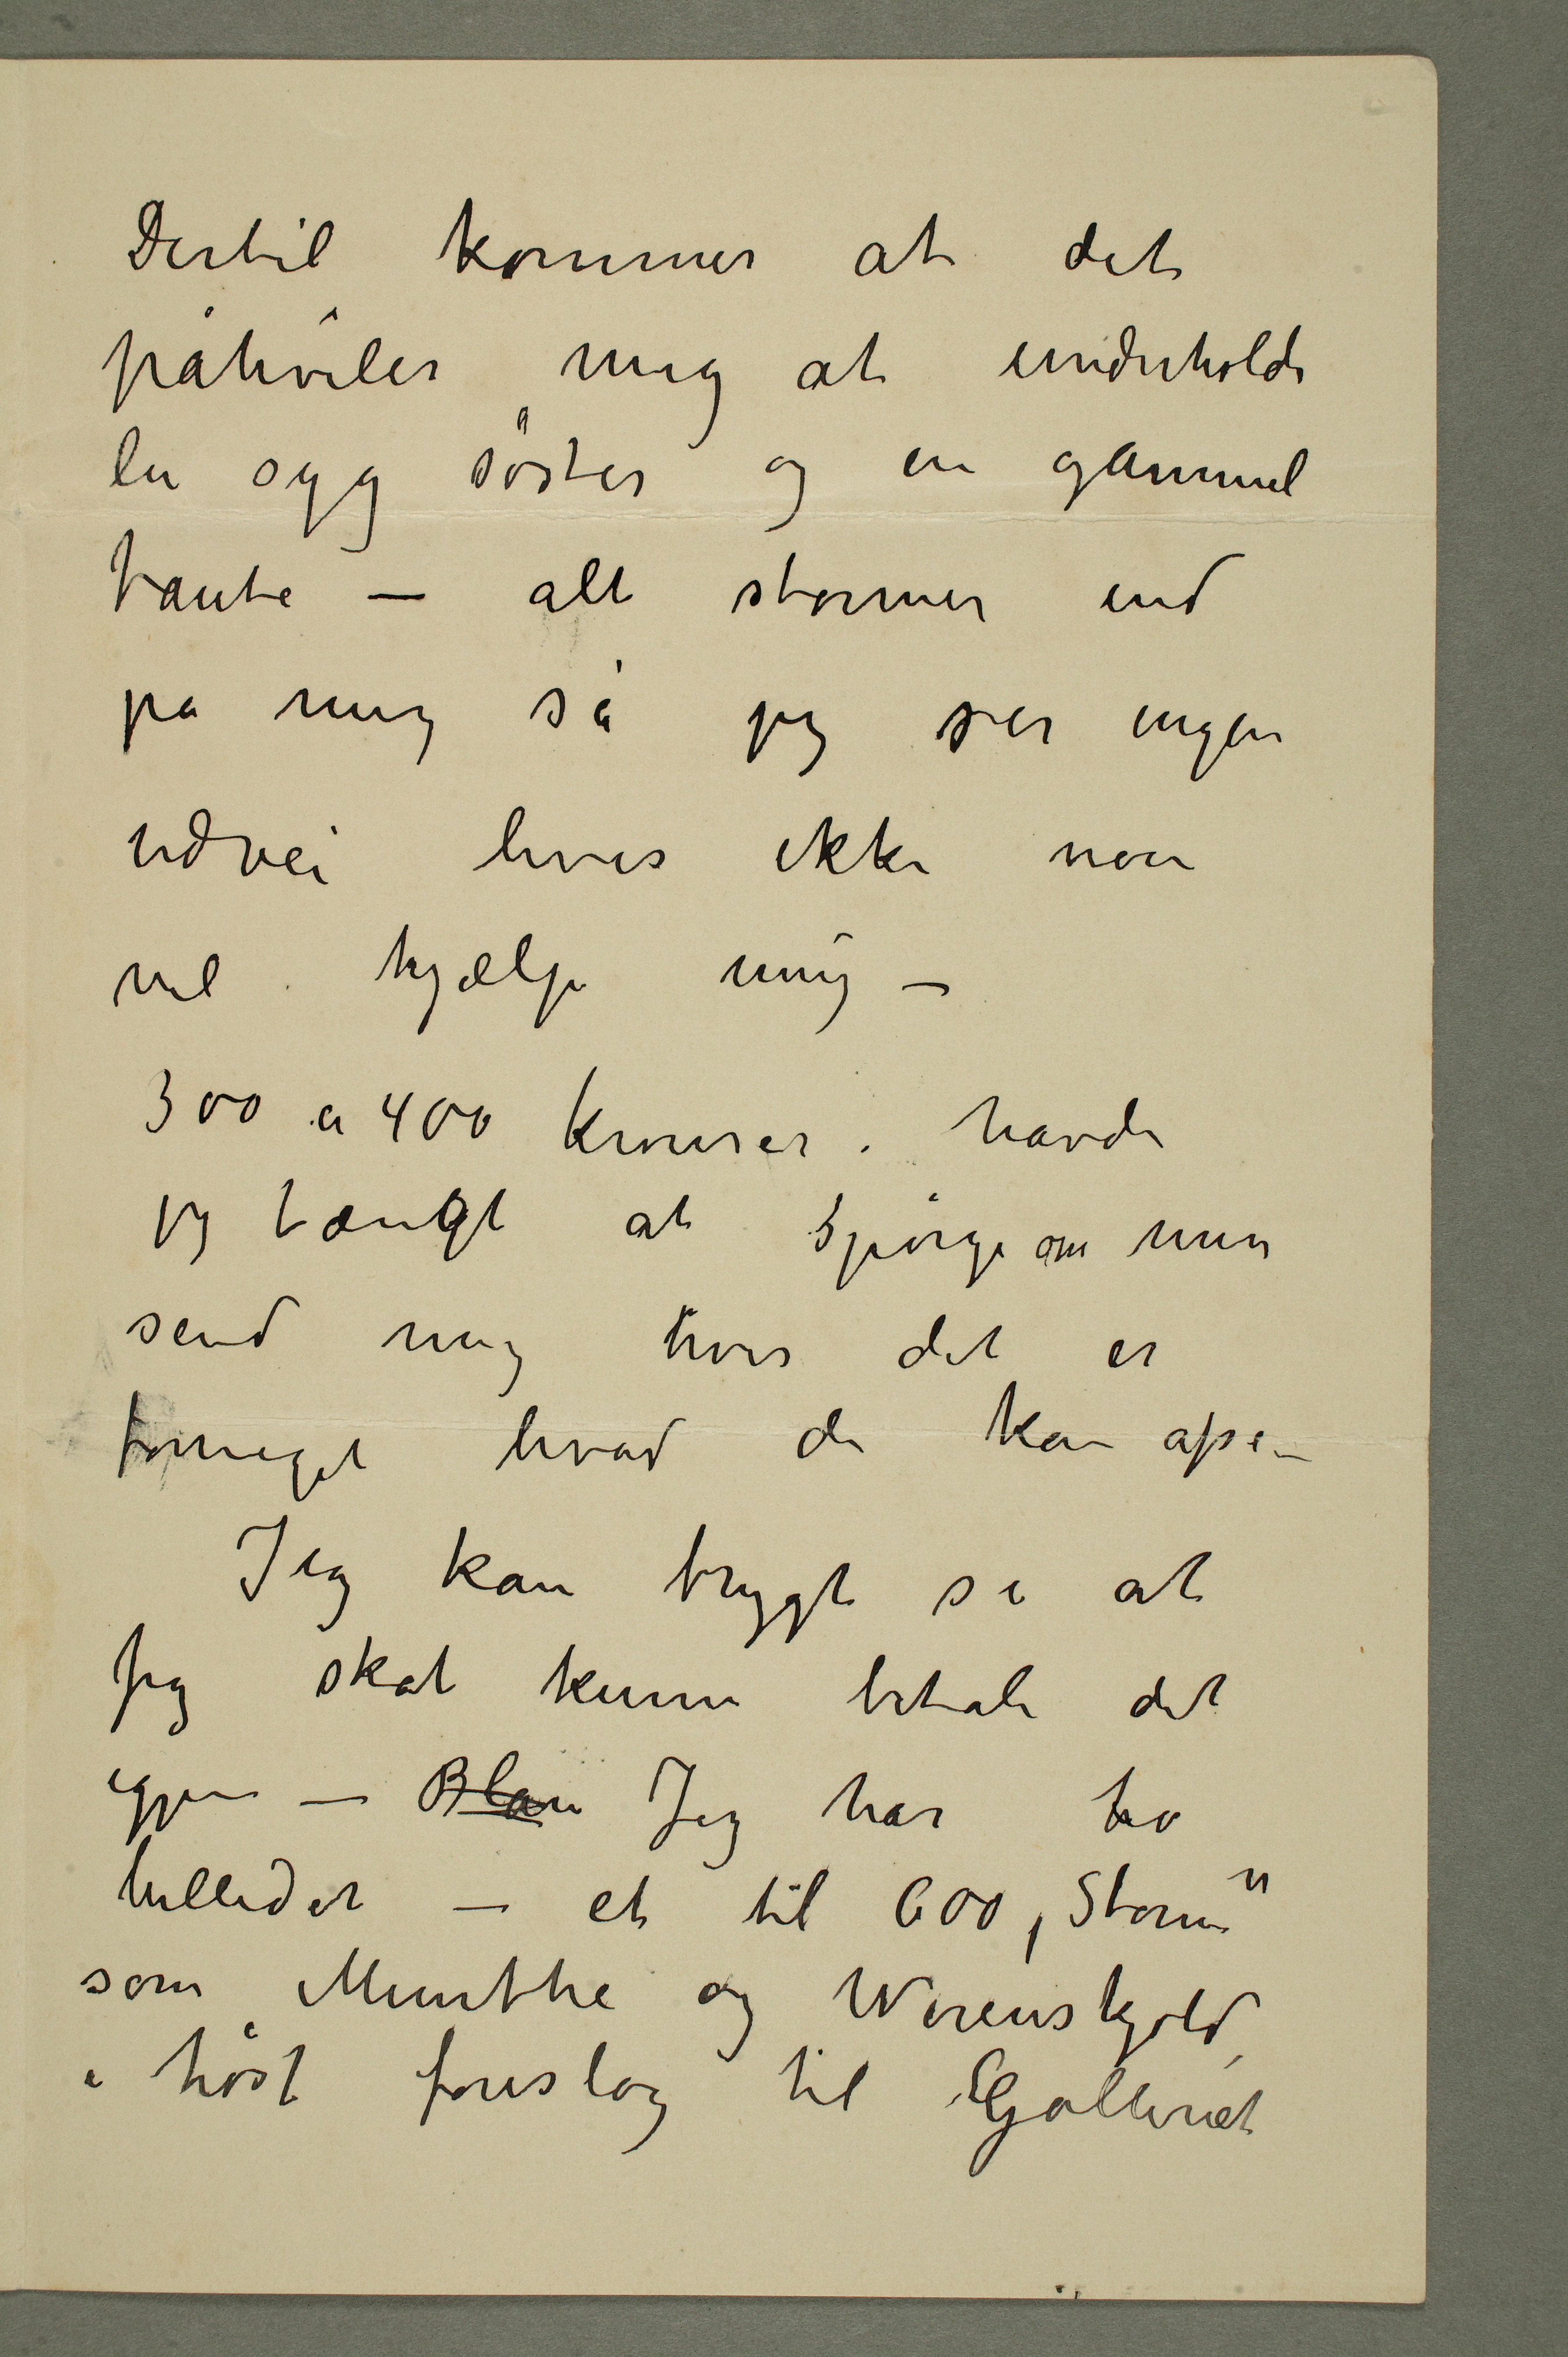 Dertil kommer at det
påhviler mig at underholde
en syg søster og en gammel
tante — alt stormer ind
på mig så jeg ser ingen
udvei hvis ikke noen
vil hjælpe mig —
300 a 400 kroner. havde
jeg tænkt at spørge om men
send mig hvis det er
formeget hvad de kan afse —
Jeg kan trygt si at
jeg skal kunne betale det
igjen — Blan Jeg har to
billeder — et til 600, „Storm“
som Munthe og Werenskjold
i høst foreslog til Galleriet